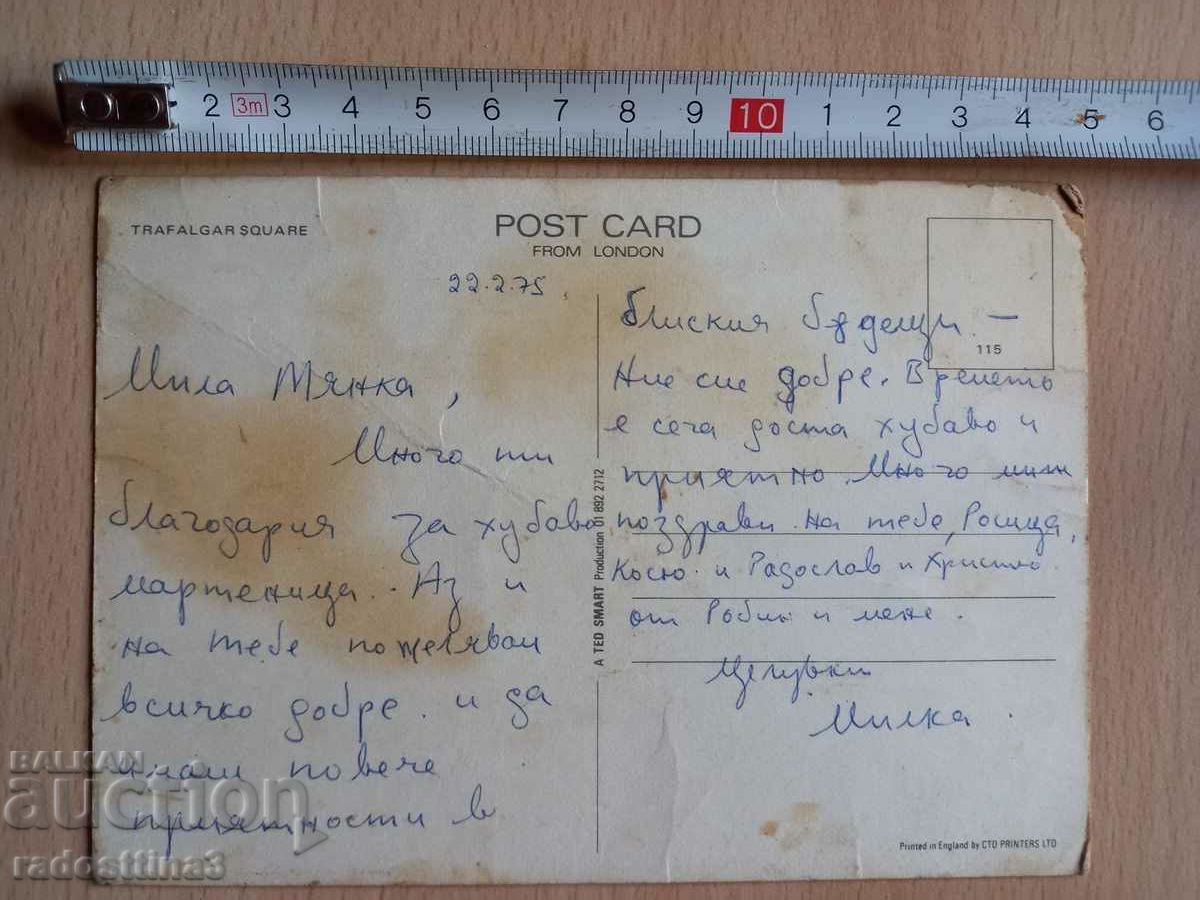 2 3m 3 4 5 6 7 8 9 10 1 2 3 4 5 6
TRAFALGAR SQUARE
POST CARD
FROM LONDON
115
22.2.75.
Мила Тянка,
Много ти
благодаря за хубава
мартеница. Аз и
на тебе пожелавам
всичко добре и да
имаш повече
приятности в
A TED SMART Production 01 892 2712
близкия бъдещи —
Ние сме добре. Времето
е сега доста хубаво и
приятно. Много мили
поздрави на тебе, Росица,
Косю и Радослав и Христо
от Робин и мене.
Целувки
Милка.
Printed in England by CTD PRINTERS LTD
BALKAN
auction
radosttina3